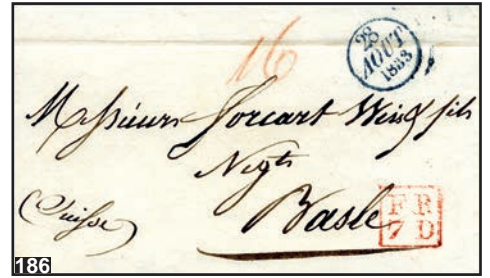 16
28
AOUT
1833
Messieurs Forcart Weis & fils
Negts
Basle
(Suisse)
F R
7 D
186